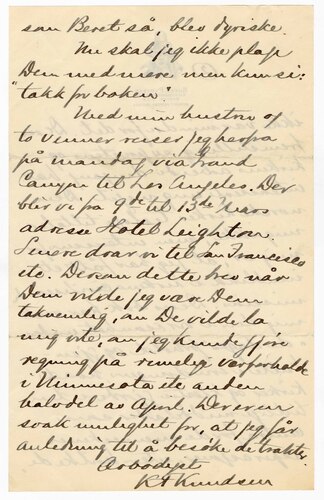 som Beret så, blev dyriske.
Nu skal jeg ikke plage
Dem med mere men kun si:
"takk for boken".
Med min hustru og
to venner reiser jeg herfra
på mandag via Grand
Canyon til Los Angeles. Der
blir vi fra 9de til 13de Mars
adresse Hotel Leighton.
Senere drar vi til San Francisco
etc. Dersom dette brev når
Dem vilde jeg være Dem
taknemlig, om De vilde la
mig vite, om jeg kunde gjøre
regning på rimelig værforholde
i Minnesota etc anden
halvdel av April. Der er en
svak mulighet for, at jeg får
anledning til å besøke de trakter.
Ærbødigst
K Knudsen